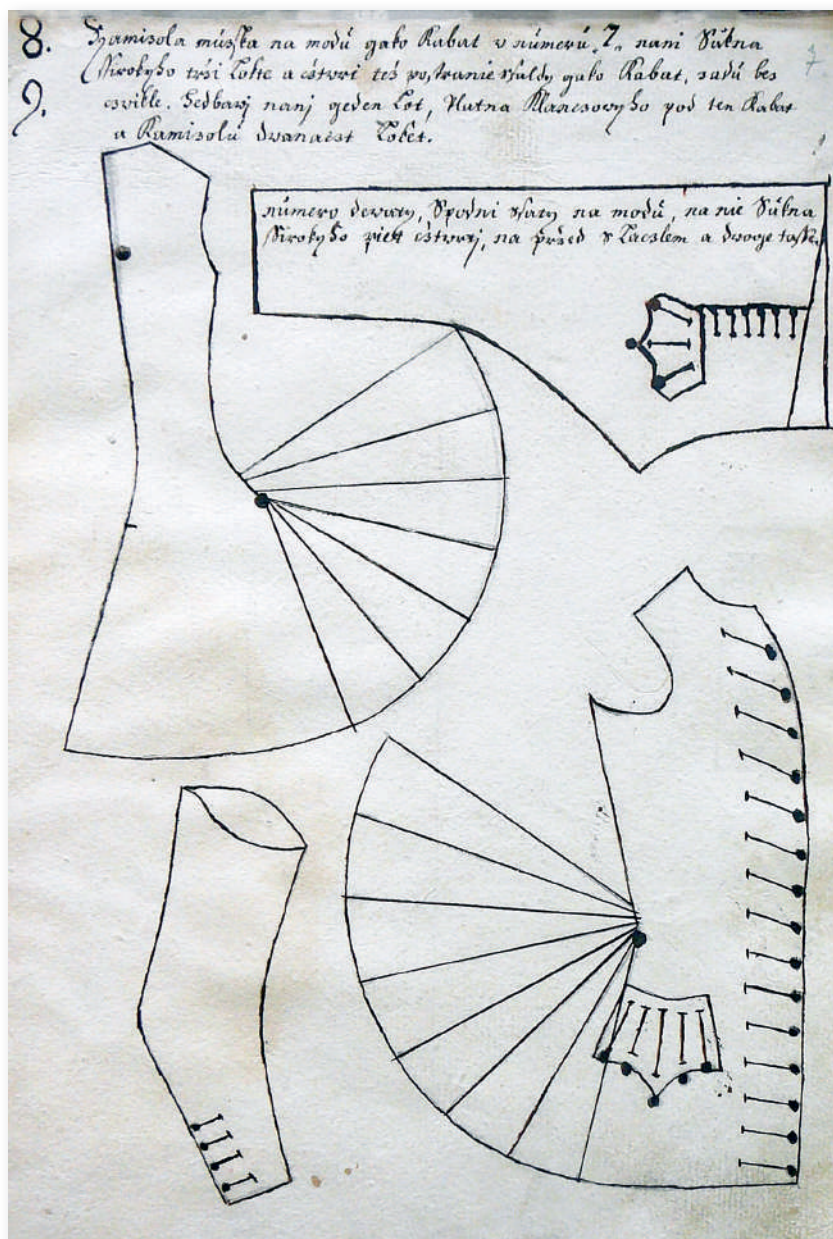 8. Kamisola mužska na modu gako Kabat v númerú „7„ nani Súkna
ssirokyho trži Lokte a cztwrt též po stranie ffaldy gako Kabat, zadú bez
9. czwikle. Hedbawj nanj geden Lot, Platna Klanczowyho pod ten Kabat
a Kamizolú dwanaczt Loket.
7
número dewaty, Spodni ssaty na modú, na nie Súkna
ssirokyho piet cztwrtj, na pržed s Laczlem a dwoge